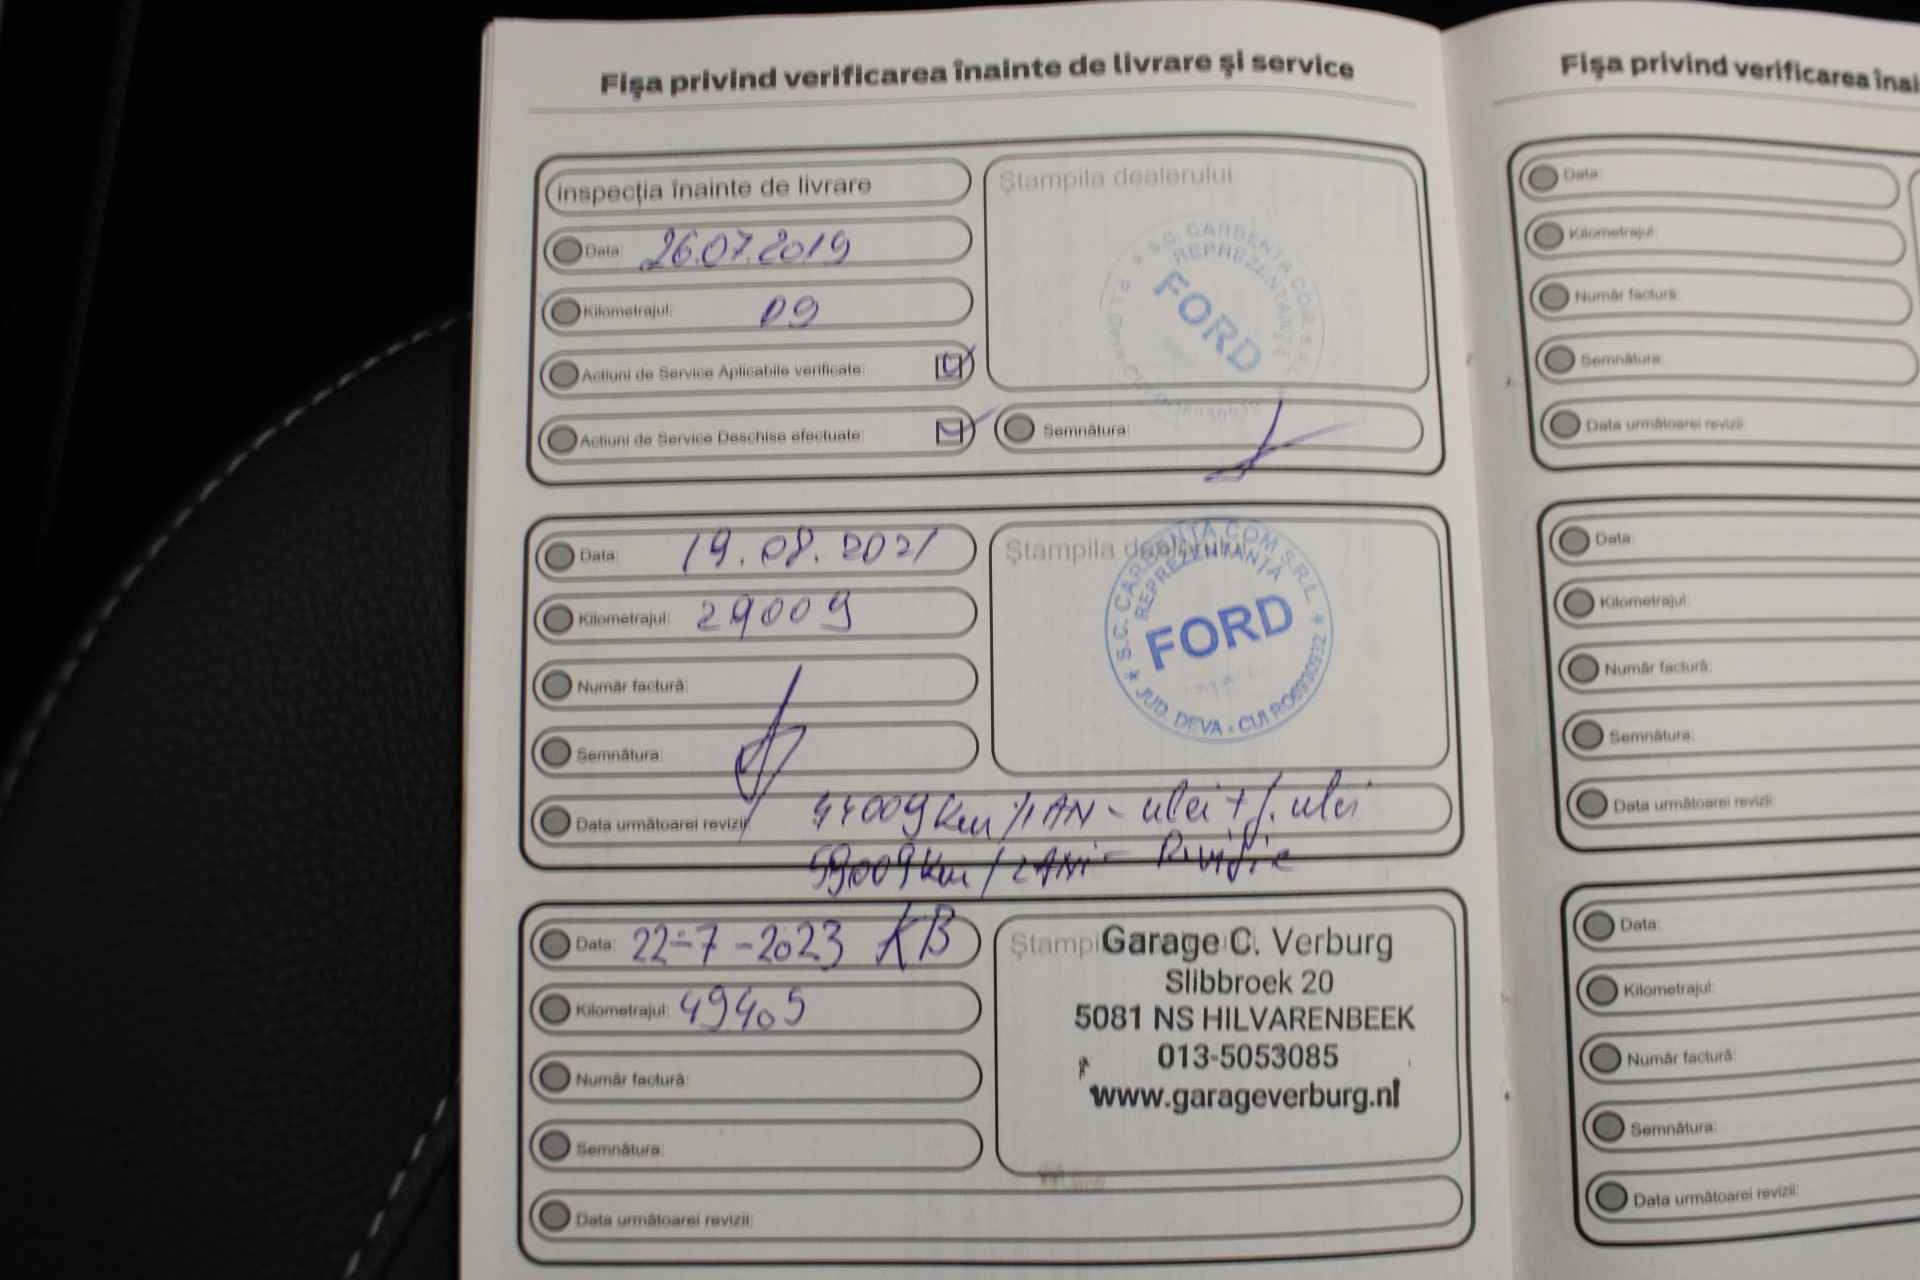 Fișa privind verificarea înainte de livrare și service
inspecția înainte de livrare
Data: 26.07.2019
Kilometrajul: 09
Acțiuni de Service Aplicabile verificate:
Acțiuni de Service Deschise efectuate:
Ștampila dealerului
S.C. CARBENTA COM S.R.L.
REPREZENTANȚA
FORD
Semnătura:
Data: 19.08.2021
Kilometrajul: 29009
Număr factură:
Semnătura:
Ștampila dealerului
S.C. CARBENTA COM S.R.L.
REPREZENTANȚA
FORD
JUD. DEVA - CUI
Data următoarei revizii: 44009 Km / 1 AN - ulei + f. ulei
59009 Km / 2 ANi - Rivizie
Data: 22-7-2023 KB
Kilometrajul: 49405
Număr factură:
Semnătura:
Data următoarei revizii:
Garage C. Verburg
Slibbroek 20
5081 NS HILVARENBEEK
013-5053085
www.garageverburg.nl
Fișa privind verificarea înai
Data:
Kilometrajul:
Număr factură:
Semnătura:
Data următoarei revizii:
Data:
Kilometrajul:
Număr factură:
Semnătura:
Data următoarei revizii:
Data:
Kilometrajul:
Număr factură:
Semnătura:
Data următoarei revizii: